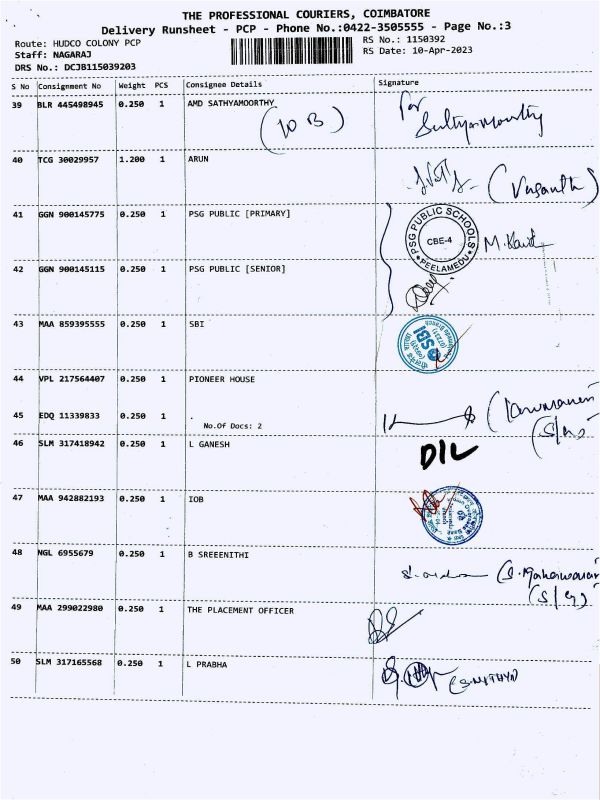 THE PROFESSIONAL COURIERS, COIMBATORE
Delivery Runsheet - PCP - Phone No.:0422-3505555 - Page No.:3
Route: HUDCO COLONY PCP
RS No.: 1150392
Staff: NAGARAJ
RS Date: 10-Apr-2023
DRS No.: DCJB115039203
S No Consignment No Weight PCS Consignee Details Signature
39 BLR 445498945 0.250 1 AMD SATHYAMOORTHY
(10 B)
for
Sathyamoorthy
40 TCG 30029957 1.200 1 ARUN
(Vasanth)
41 GGN 900145775 0.250 1 PSG PUBLIC [PRIMARY]
PSG PUBLIC SCHOOLS
CBE-4
PEELAMEDU
42 GGN 900145115 0.250 1 PSG PUBLIC [SENIOR]
43 MAA 859395555 0.250 1 SBI
SBI
44 VPL 217564407 0.250 1 PIONEER HOUSE
45 EDQ 11339833 0.250 1 .
No.Of Docs: 2
46 SLM 317418942 0.250 1 L GANESH
D/L
47 MAA 942882193 0.250 1 IOB
48 NGL 6955679 0.250 1 B SREEENITHI
49 MAA 299022980 0.250 1 THE PLACEMENT OFFICER
50 SLM 317165568 0.250 1 L PRABHA